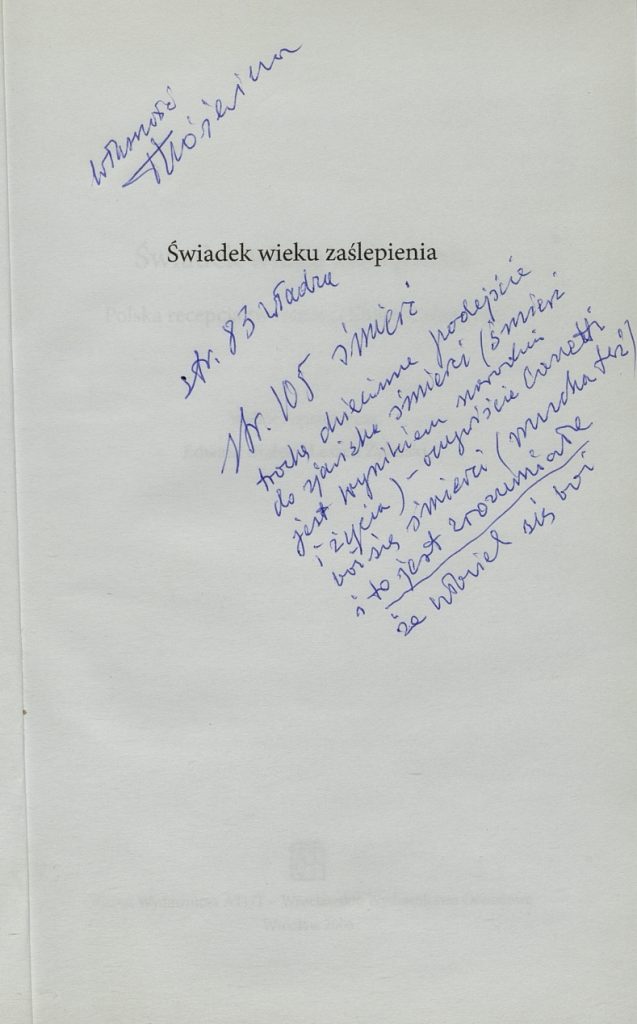 własność
Świadek wieku zaślepienia
str. 83 władza
str. 105 śmierć
trochę dziecinne podejście
do zjawiska śmierci (śmierć
jest wynikiem narodzin
i życia) – oczywiście Canetti
boi się śmierci (mucha też)
i to jest zrozumiałe
że człowiek się boi